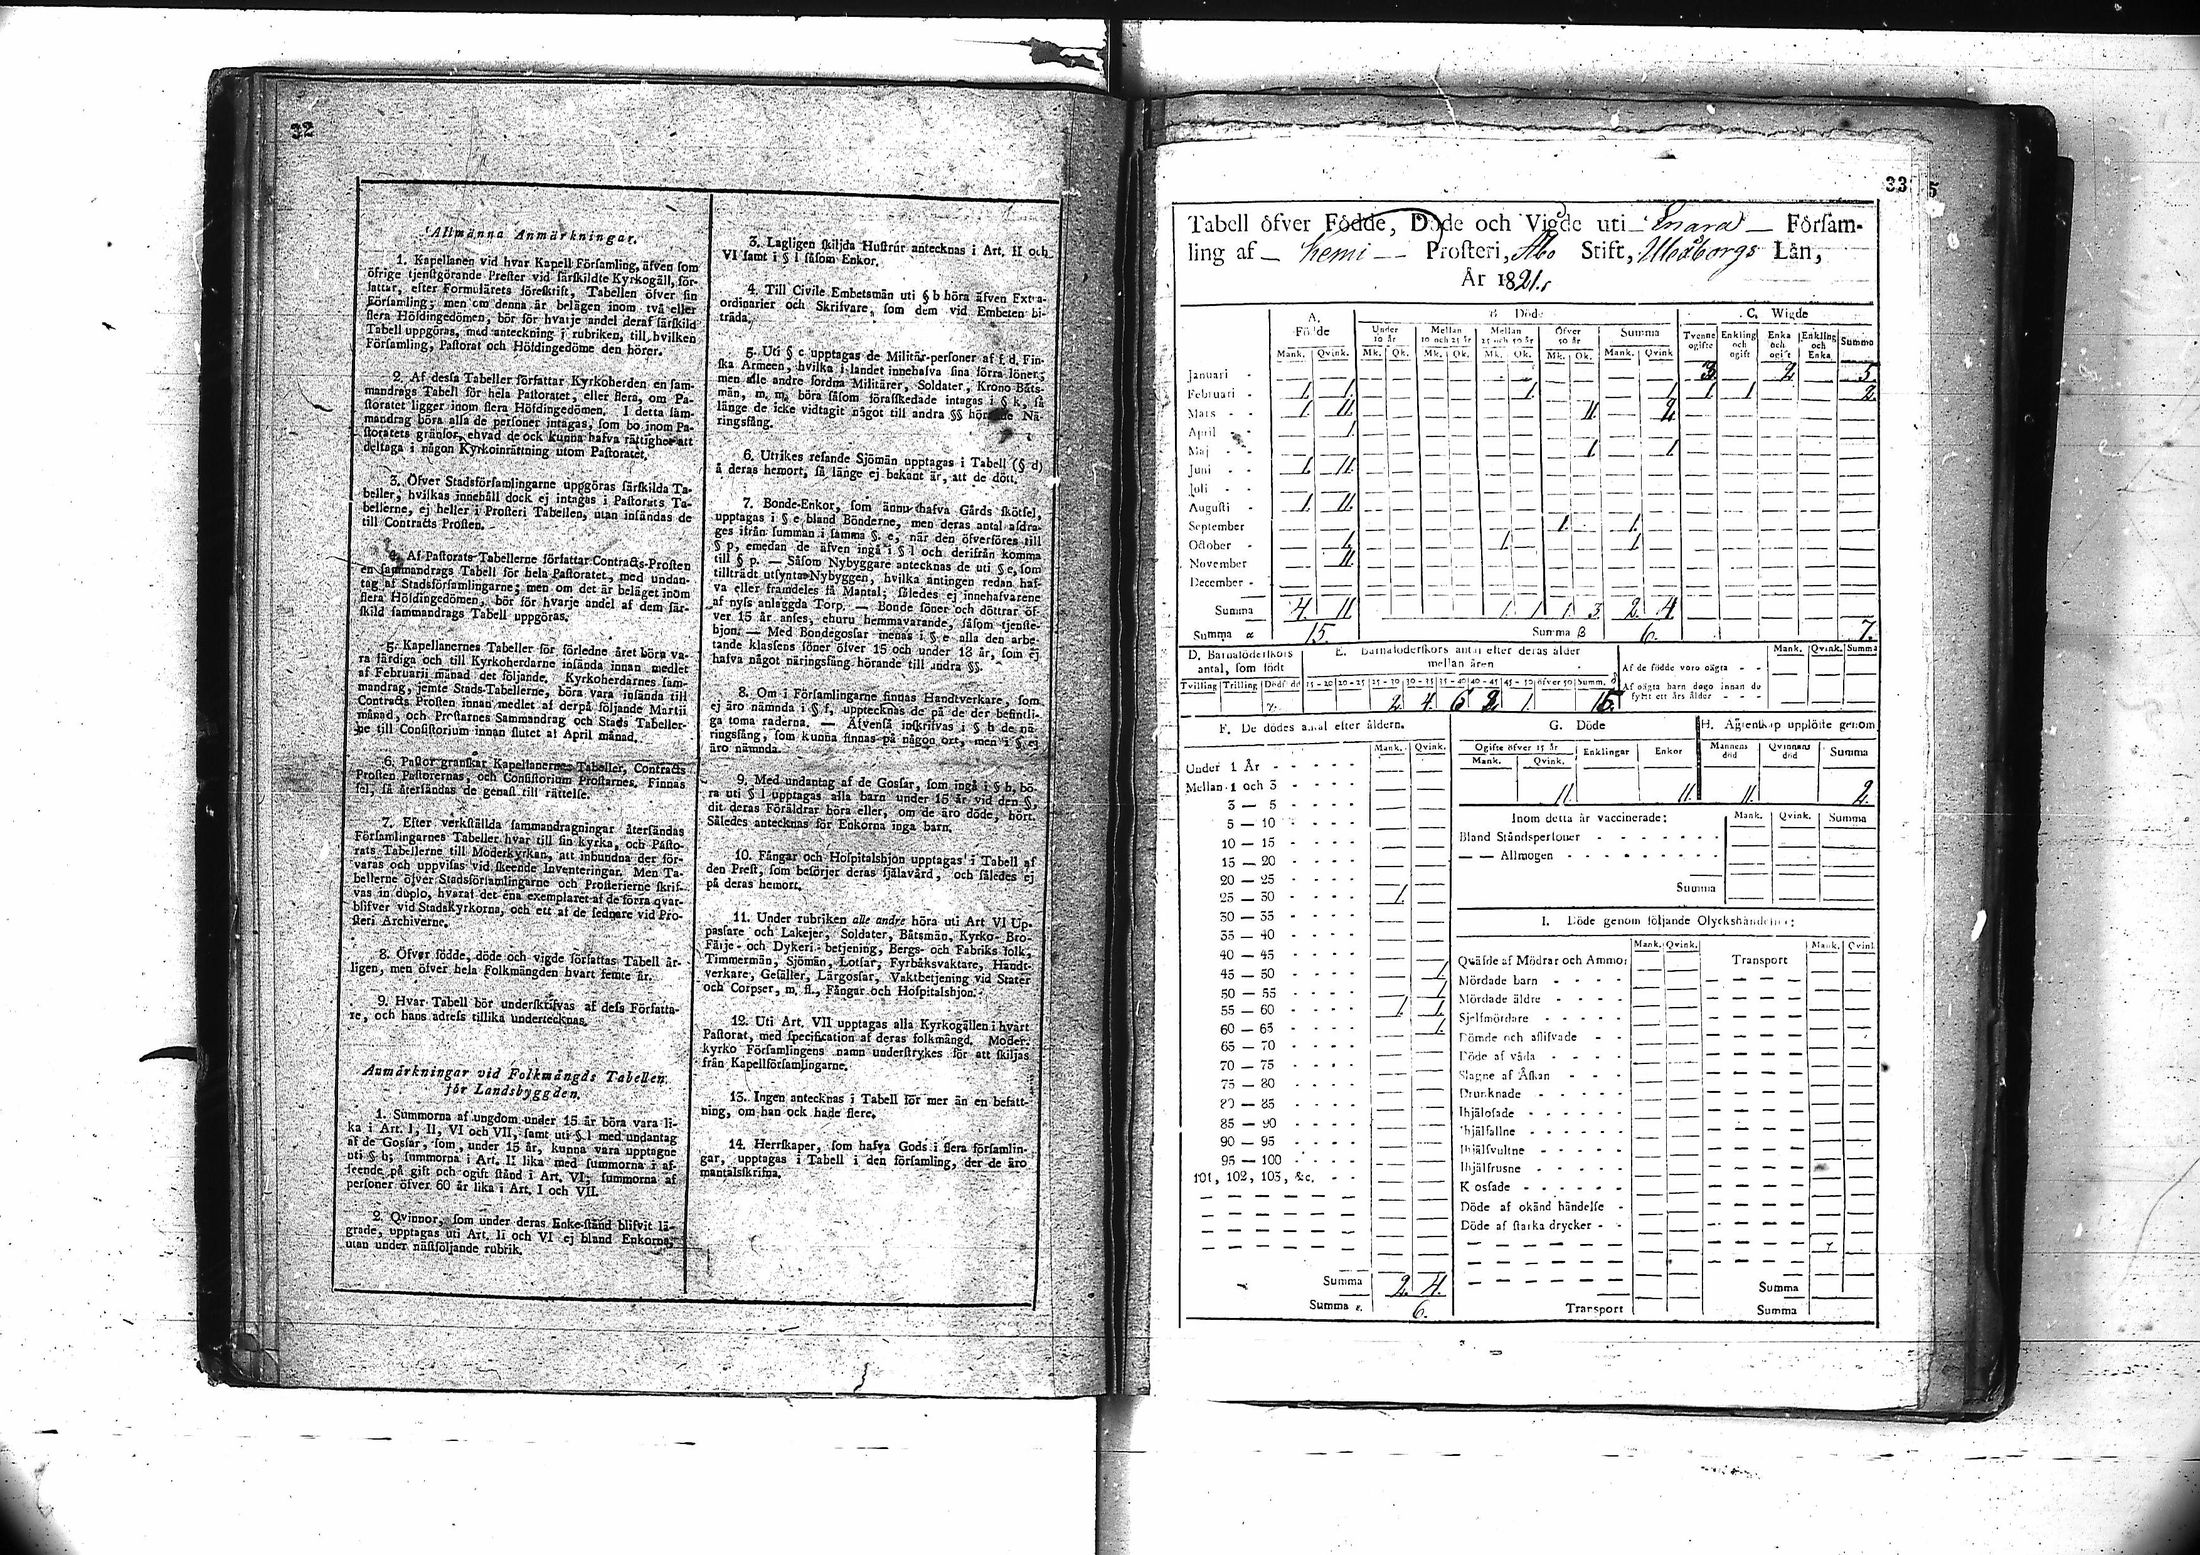 32
Allmänna Anmärkningar.
1. Kapellanen vid hvar Kapell Församling, äfven som
öfrige tjenstgörande Prester vid särskildte Kyrkogäll, för-
fattar, efter Formulärets föreskrift, Tabellen öfver sin
Församling; men om denna är belägen inom två eller
flera Höfdingedömen, bör för hvarje andel deraf särskild
Tabell uppgöras, med anteckning i rubriken, till hvilken
Församling, Pastorat och Höfdingedöme den hörer.
2. Af dessa Tabeller författar Kyrkoherden en sam-
mandrags Tabell för hela Pastoratet, eller flera, om Pa-
storatet ligger inom flera Höfdingedömen. I detta sam-
mandrag böra alla de personer intagas, som bo inom Pa-
storatets gränsor, ehvad de ock kunna hafva rättighet att
deltaga i någon Kyrkoinrättning utom Pastoratet.
3. Öfver Stadsförsamlingarne uppgöras särskilda Ta-
beller, hvilkas innehåll dock ej intagas i Pastorats Ta-
bellerne, ej heller i Prosteri Tabellen, utan insändas de
till Contracts Prosten.
4. Af Pastorats Tabellerne författar Contracts-Prosten
en sammandrags Tabell för hela Pastoratet, med undan-
tag af Stadsförsamlingarne; men om det är beläget inom
flera Höfdingedömen, bör för hvarje andel af dem sär-
skild sammandrags Tabell uppgöras.
5. Kapellanernes Tabeller för förledne året böra va-
ra färdiga och till Kyrkoherdarne insända innan medlet
af Februarii månad det följande. Kyrkoherdarnes sam-
mandrag, jemte Stads-Tabellerne, böra vara insända till
Contracts Prosten innan medlet af derpå följande Martii
månad, och Prostarnes Sammandrag och Stads Tabeller-
ne till Consistorium innan slutet af April månad.
6. Pastor granskar Kapellanernes Tabeller, Contracts
Prosten Pastorernas, och Consistorium Prostarnes. Finnas
fel, så återsändas de genast till rättelse.
7. Efter verkställda sammandragningar återsändas
Församlingarnes Tabeller hvar till sin kyrka, och Pasto-
rats Tabellerne till Moderkyrkan, att inbundna der för-
varas och uppvisas vid skeende Inventeringar. Men Ta-
bellerne öfver Stadsförsamlingarne och Prosterierne skrif-
vas in duplo, hvaraf det ena exemplaret af de förra qvar-
blifver vid Stadskyrkorna, och ett af de sednare vid Pro-
steri Archiverne.
8. Öfver födde, döde och vigde författas Tabell år-
ligen, men öfver hela Folkmängden hvart femte år.
9. Hvar Tabell bör underskrifvas af dess Författa-
re, och hans adress tillika undertecknas.
Anmärkningar vid Folkmängds Tabellen
för Landsbyggden.
1. Summorna af ungdom under 15 år böra vara li-
ka i Art. I, II, VI och VII, samt uti § l med undantag
af de Gossar, som, under 15 år, kunna vara upptagne
uti § h; summorna i Art. II lika med summorna i af-
seende på gift och ogift stånd i Art. VI; summorna af
personer öfver 60 år lika i Art. I och VII.
2. Qvinnor, som under deras Enke-stånd blifvit lä-
grade, upptagas uti Art. II och VI ej bland Enkorna,
utan under nästföljande rubrik.
3. Lagligen skiljda Hustrur antecknas i Art. II och
VI samt i § l såsom Enkor.
4. Till Civile Embetsmän uti § b höra äfven Extra-
ordinarier och Skrifvare, som dem vid Embeten bi-
träda.
5. Uti § c upptagas de Militär-personer af f. d. Fin-
ska Armeen, hvilka i landet innehafva sina förra löner;
men alle andre fordna Militärer, Soldater, Krono Båts-
män, m. m. böra såsom förafskedade intagas i § k, så
länge de icke vidtagit något till andra §§ hörande Nä-
ringsfång.
6. Utrikes resande Sjömän upptagas i Tabell (§ d)
å deras hemort, så länge ej bekant är, att de dött.
7. Bonde-Enkor, som ännu hafva Gårds skötsel,
upptagas i § e bland Bönderne, men deras antal afdra-
ges ifrån summan i samma §. e, när den öfverföres till
§ p, emedan de äfven ingå i § l och derifrån komma
till § p. — Såsom Nybyggare antecknas de uti § e, som
tillträdt utsynta Nybyggen, hvilka antingen redan haf-
va eller framdeles få Mantal; således ej innehafvarene
af nyss anlaggda Torp. — Bonde söner och döttrar öf-
ver 15 år anses, ehuru hemmavarande, såsom tjenste-
hjon. — Med Bondegossar menas i § e alla den arbe-
tande klassens söner öfver 15 och under 18 år, som ej
hafva något näringsfång hörande till andra §§.
8. Om i Församlingarne finnas Handtverkare, som
ej äro nämnda i § f, upptecknas de på de der befintli-
ga toma raderna. — Äfvenså inskrifvas i § h de nä-
ringsfång, som kunna finnas på någon ort, men i § ej
äro nämnda.
9. Med undantag af de Gossar, som ingå i § h, bö-
ra uti § l upptagas alla barn under 15 år vid den §,
dit deras Föräldrar höra eller, om de äro döde, hört.
Således antecknas för Enkorna inga barn.
10. Fångar och Hospitalshjon upptagas i Tabell af
den Prest, som besörjer deras själavård, och således ej
på deras hemort.
11. Under rubriken alle andre höra uti Art VI Up-
passare och Lakejer, Soldater, Båtsmän, Kyrko- Bro-
Färje- och Dykeri-betjening, Bergs- och Fabriks folk,
Timmermän, Sjömän, Lotsar, Fyrbåksvaktare, Handt-
verkare, Gesäller, Lärgossar, Vaktbetjening vid Stater
och Corpser, m. fl., Fångar och Hospitalshjon.
12. Uti Art. VII upptagas alla Kyrkogällen i hvart
Pastorat, med specification af deras folkmängd. Moder-
kyrko Församlingens namn understrykes för att skiljas
från Kapellförsamlingarne.
13. Ingen antecknas i Tabell för mer än en befatt-
ning, om han ock hade flere.
14. Herrskaper, som hafva Gods i flera församlin-
gar, upptagas i Tabell i den församling, der de äro
mantalsskrifna.
33
5
Tabell öfver Födde, Döde och Vigde uti Enara Försam-
ling af Kemi Prosteri, Åbo Stift, Uleåborgs Län,
År 1821.
A. Födde B Döde C. Wigde
Under 10 år Mellan 10 och 25 år Mellan 25 och 50 år Öfver 50 år Summa Tvenne ogifte Enkling och ogift Enka och ogift Enkling och Enka Summa
Mank. Qvink. Mk. Qk. Mk. Qk. Mk. Qk. Mk. Qk. Mank. Qvink
Januari 3 2 5
Februari 1 1 1 1 1 1 2
Mars 1 11 11 2
April 1
Maj 1 1
Juni 1 11
Juli
Augusti 1 11
September 1 1
October 1 1 1
November 11
December
Summa 4 11 1 1 1 3 2 4
Summa α 15 Summa β 6 7
D. Barnaföderskors antal, som födt
Tvilling Trilling Dödf. dt
E. Barnaföderskors antal efter deras ålder mellan åren
15-20 20-25 25-30 30-35 35-40 40-45 45-50 öfver 50 Summ. δ
2 4 6 2 1 15
Mank. Qvink. Summa
Af de födde voro oägta
Af oägta barn dogo innan de fyllt ett års ålder
F. De dödes antal efter åldern.
Mank. Qvink.
Under 1 År
Mellan 1 och 3
3 — 5
5 — 10
10 — 15
15 — 20
20 — 25
25 — 30 1
30 — 35
35 — 40
40 — 45
45 — 50 1
50 — 55 1
55 — 60 1 1
60 — 65 1
65 — 70
70 — 75
75 — 80
80 — 85
85 — 90
90 — 95
95 — 100
101, 102, 103, &c.
Summa 2 4
Summa ε. 6
G. Döde
Ogifte öfver 15 år Enklingar Enkor
Mank. Qvink.
11 11
H. Ägtenskap upplöste genom
Mannens död Qvinnans död Summa
11 2
Inom detta år vaccinerade: Mank. Qvink. Summa
Bland Ståndspersoner
— — Allmogen
Summa
I. Döde genom följande Olyckshändelser:
Mank. Qvink. Mank. Qvink
Qväfde af Mödrar och Ammor Transport
Mördade barn
Mördade äldre
Sjelfmördare
Dömde och aflifvade
Döde af våda
Slagne af Åskan
Drunknade
Ihjälosade
Ihjälfallne
Ihjälsvultne
Ihjälfrusne
Krossade
Döde af okänd händelse
Döde af starka drycker
Summa
Transport Summa